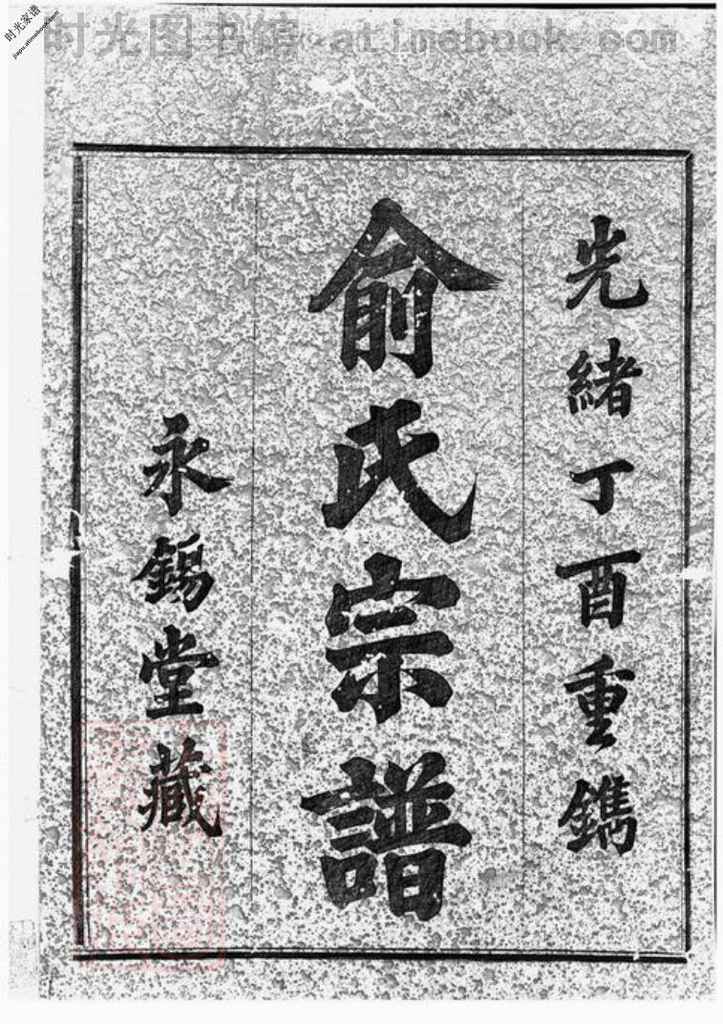 时光家谱
jiapu.atimebook.com
时光图书馆 atimebook.com
光緒丁酉重鐫
俞氏宗譜
永錫堂藏